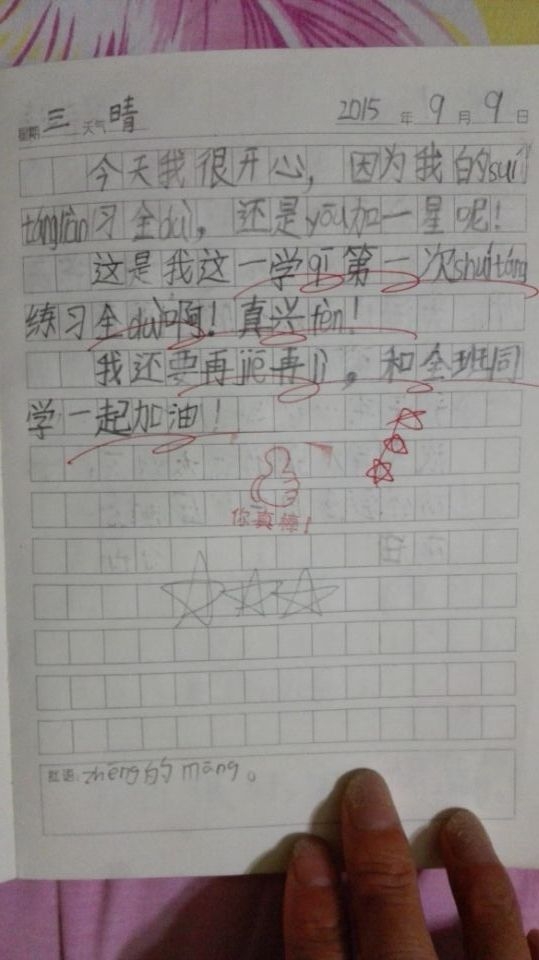 星期 三 天气 晴 2015 年 9 月 9 日
今天我很开心，因为我的suí
tángliàn习全duì，还是yōu加一星呢！
这是我这一学qī第一次shuítáng
练习全duì啊！真兴fèn！
我还要再jiē再lì，和全班同
学一起加油！
你真棒！
批语：zhēng的māng。